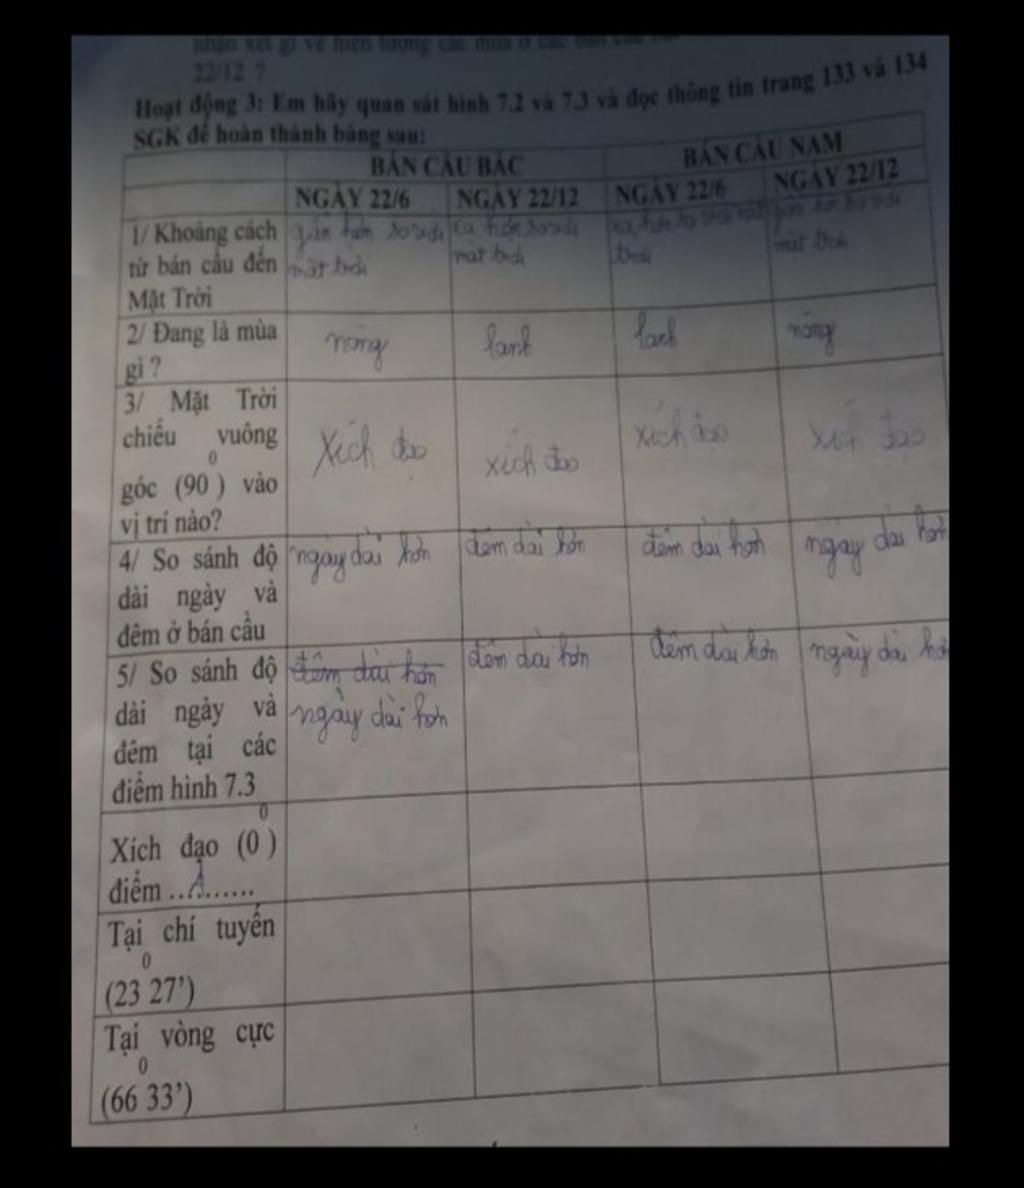 nhận xét gì về hiện tượng các mùa ở các bán cầu
22/12 ?
Hoạt động 3: Em hãy quan sát hình 7.2 và 7.3 và đọc thông tin trang 133 và 134
SGK để hoàn thành bảng sau:
BÁN CẦU BẮC BÁN CẦU NAM
NGÀY 22/6 NGÀY 22/12 NGÀY 22/6 NGÀY 22/12
1/ Khoảng cách gần hơn so với xa hơn so với
từ bán cầu đến mặt trời mặt trời trời mặt trời
Mặt Trời
2/ Đang là mùa nóng lạnh lạnh nóng
gì ?
3/ Mặt Trời
chiếu vuông xích đạo xích đạo xích đạo xích đạo
0
góc (90 ) vào
vị trí nào?
4/ So sánh độ ngày dài hơn đêm dài hơn đêm dài hơn ngày dài hơn
dài ngày và
đêm ở bán cầu
5/ So sánh độ đêm dài hơn đêm dài hơn đêm dài hơn ngày dài hơn
dài ngày và ngày dài hơn
đêm tại các
điểm hình 7.3
0
Xích đạo (0 )
điểm ..A.......
Tại chí tuyến
0
(23 27’)
Tại vòng cực
0
(66 33’)